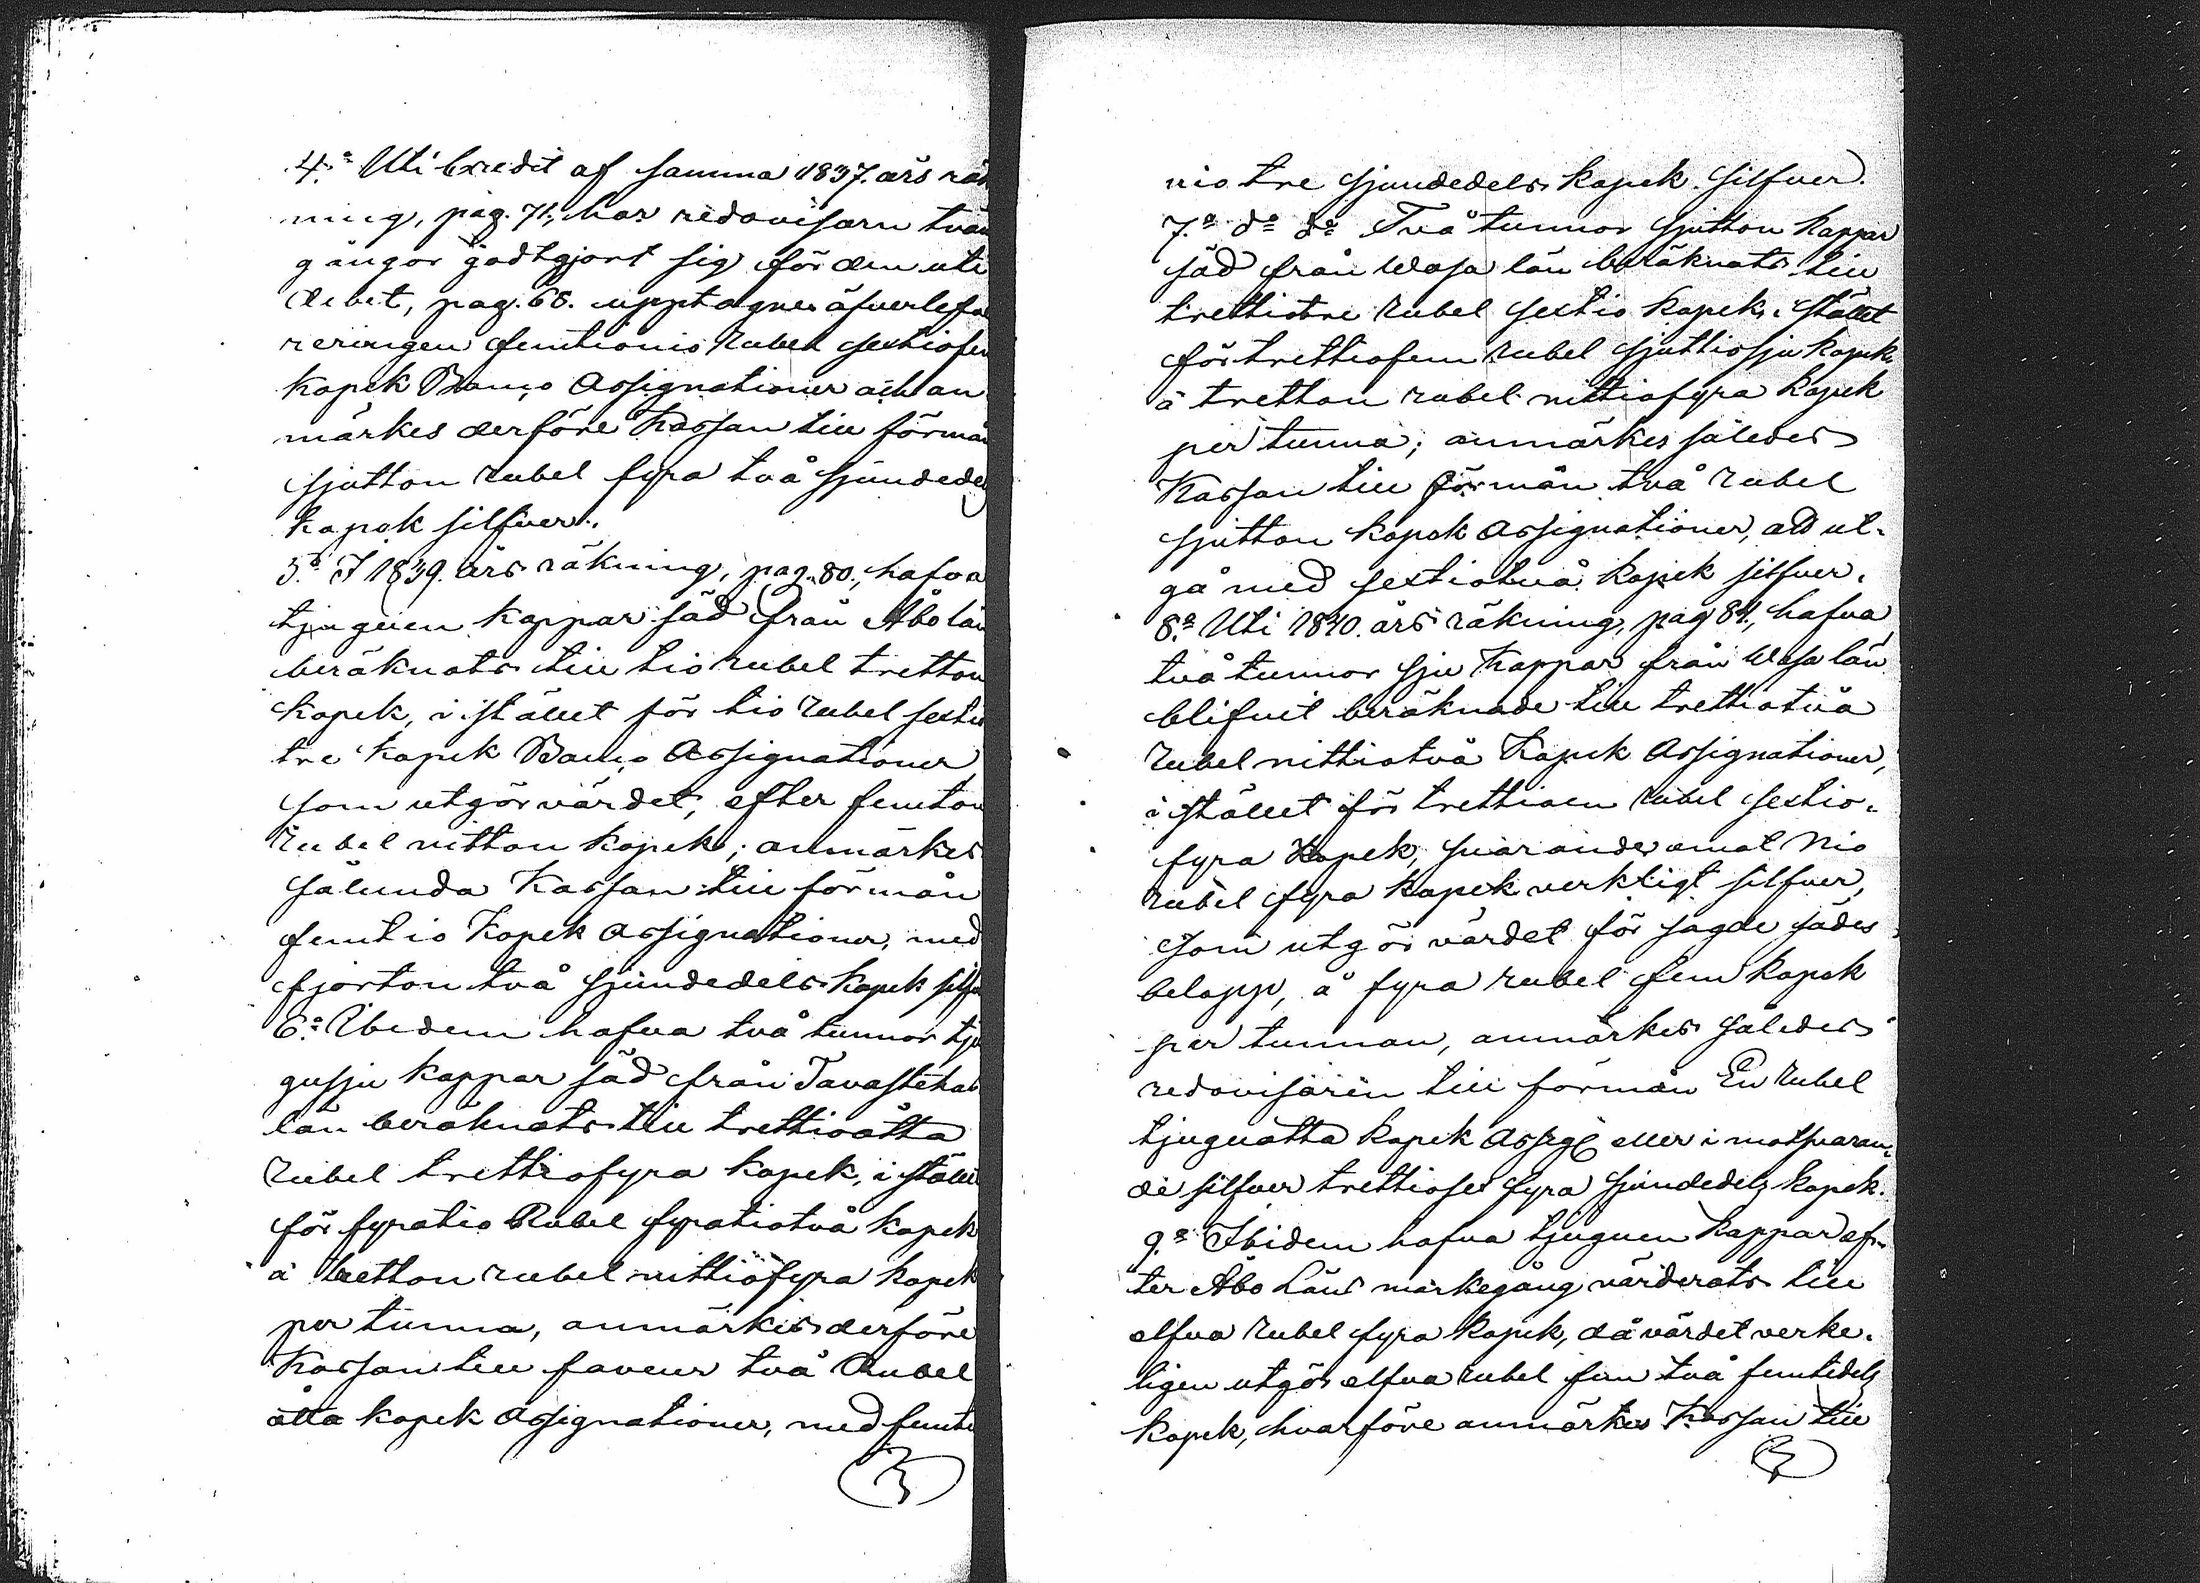 4:o Uti Credit af samma 1837. års räk
ning, pag. 71., har redovisarn tvän
gångor godtgjort sig för den uti
debet, pag. 68. upptagne öfverlefve
reringen femtionio Rubel sextiofem
kopek Banco Assignationer och an
märkes derföre Kassan till förmån
sjutton rubel fyra två sjundedels
kopek silfver.
5:o I 1839. års räkning, pag. 80., hafva
tjuguen kappar säd från Åbo län
beräknats till tio rubel tretton
kopek, i stället för tio Rubel sextio
tre kopek Banco Assignationer
som utgör värdet, efter femton
Rubel nitton kopek; anmärkes
sålunda Kassan till förmån
femtio Kopek assignationer, med
fjorton två sjundedels kopek silfv
6:o Ibidem hafva två tunnor tju
gusju kappar säd från Tavastehus
län beräknats till trettioåtta
Rubel trettiofyra kopek, i stället
för fyratio Rubel fyratiotvå kopek
à tretton rubel nittiofyra kopek
per tunna, anmärkes derföre
Kassan till faveur två Rubel
åtta kopek Assignationer, med femti
nio tre sjundedels kopek silfver.
7:o d:o d:o Två tunnor sjutton kappar
säd från Wasa län beräknats till
trettiotre rubel sextio kopek, i stället
för trettiofem rubel sjuttiosju kopek
à tretton rubel nittiofyra kopek
per tunna; anmärkes således
Kassan till förmån två rubel
sjutton kopek Assignationer, att ut-
gå med sextiotvå kopek silfver.
8:o Uti 1840. års räkning, pag 84., hafva
två tunnor sju kappar från Wasa län
blifvit beräknade till trettiotvå
Rubel nittiotvå Kopek Assignationer,
i stället för trettioen rubel sextio-
fyra Kopek, svarande emot Nio
rubel fyra kopek verkligt silfver,
som utgör värdet för sagde sädes
belopp, à fyra rubel fem kopek
per tunnan, anmärkes således
redovisaren till förmån En Rubel
tjuguåtta kopek Assig: eller i motsvaran-
de silfver trettiosex fyra sjundedels kopek.
9:o Ibidem hafva tjuguen kappar ef-
ter Åbo Läns markegång värderats till
elfva rubel fyra kopek, då värdet verke-
ligen utgör elfva rubel fem två femtedels
kopek, hvarföre anmärkes Kassan till